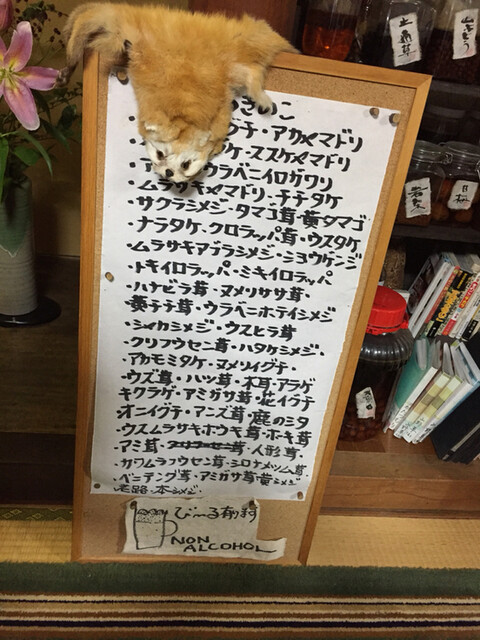 きのこ
グチ・アカヤマドリ
ケ・ススケヤマドリ
ウラベニイロガワリ
・ムラサキヤマドリ・チチタケ
・サクラシメジ・タマゴ茸・黄タマゴ
・ナラタケ・クロラッパ茸・ウスタケ
・ムラサキアブラシメジ・ショウゲンジ
・トキイロラッパ・ミキイロラッパ
・ハナビラ茸・ヌメリササ茸・
・黄チチ茸・ウラベニホテイシメジ
・シャカシメジ・ウスヒラ茸
・クリフウセン茸・ハタケシメジ・
・アカモミタケ・ヌメリイグチ・
・ウズ茸・ハツ茸・木耳・アラゲ
キクラゲ・アミガサ茸・花イグチ
・オニイグチ・アンズ茸・鹿のシタ
・ウスムラサキホウキ茸・ホーキ茸
・アミ茸・人形茸・
・カワムラフウセン茸・シロナメツム茸・
・ベニテング茸・アミガサ茸・黄シメジ・
老路・本シメジ・
びーる有〼
NON
ALCOHOL